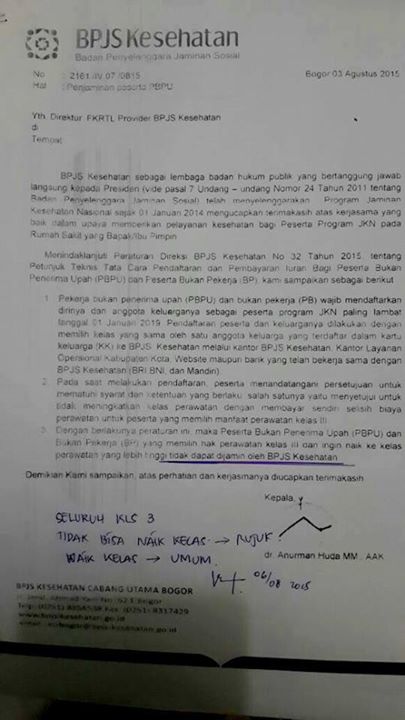 BPJS Kesehatan
Badan Penyelenggara Jaminan Sosial
No : 2161 /IV.07 /0815
Bogor 03 Agustus 2015
Hal : Penjaminan peserta PBPU
Yth. Direktur FKRTL Provider BPJS Kesehatan
di
Tempat
BPJS Kesehatan sebagai lembaga badan hukum publik yang bertanggung jawab
langsung kepada Presiden (vide pasal 7 Undang – undang Nomor 24 Tahun 2011 tentang
Badan Penyelenggara Jaminan Sosial) telah menyelenggarakan Program Jaminan
Kesehatan Nasional sejak 01 Januari 2014 mengucapkan terimakasih atas kerjasama yang
baik dalam upaya memberikan pelayanan kesehatan bagi Peserta Program JKN pada
Rumah Sakit yang Bapak/Ibu Pimpin
Menindaklanjuti Peraturan Direksi BPJS Kesehatan No 32 Tahun 2015 tentang
Petunjuk Teknis Tata Cara Pendaftaran dan Pembayaran Iuran Bagi Peserta Bukan
Penerima Upah (PBPU) dan Peserta Bukan Pekerja (BP), kami sampaikan sebagai berikut
1. Pekerja bukan penerima upah (PBPU) dan bukan pekerja (PB) wajib mendaftarkan
dirinya dan anggota keluarganya sebagai peserta program JKN paling lambat
tanggal 01 Januari 2019. Pendaftaran peserta dan keluarganya dilakukan dengan
memilih kelas yang sama oleh satu anggota keluarga yang terdaftar dalam kartu
keluarga (KK) ke BPJS Kesehatan melalui kantor BPJS Kesehatan, Kantor Layanan
Operasional Kabupaten Kota, Website maupun bank yang telah bekerja sama dengan
BPJS Kesehatan (BRI BNI, dan Mandiri)
2. Pada saat melakukan pendaftaran, peserta menandatangani persetujuan untuk
mematuhi syarat dan ketentuan yang berlaku salah satunya yaitu menyetujui untuk
tidak meningkatkan kelas perawatan dengan membayar sendiri selisih biaya
perawatan untuk peserta yang memilih manfaat perawatan kelas III
3. Dengan berlakunya peraturan ini, maka Peserta Bukan Penerima Upah (PBPU) dan
Bukan Pekerja (BP) yang memilih hak perawatan kelas III dan ingin naik ke kelas
perawatan yang lebih tinggi tidak dapat dijamin oleh BPJS Kesehatan
Demikian Kami sampaikan, atas perhatian dan kerjasmanya diucapkan terimakasih
Kepala,
SELURUH KLS 3
TIDAK BISA NAIK KELAS → RUJUK
NAIK KELAS → UMUM.
dr. Anurman Huda MM, AAK
06/08 2015
BPJS KESEHATAN CABANG UTAMA BOGOR
www.bpjs-kesehatan.go.id